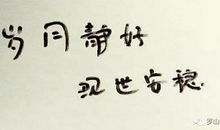 岁月静好
现世安稳.
罗山